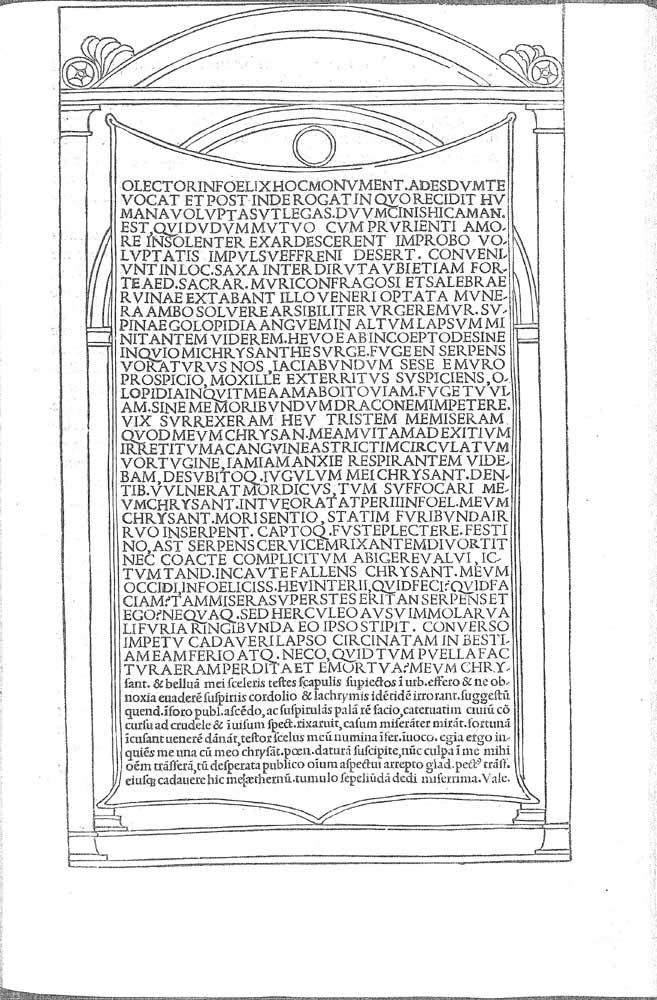 OLECTORINFOELIXHOCMONVMENT.ADESDVMTE
VOCAT ET POST INDE ROGAT IN QVO RECIDIT HV
MANA VOLVPTAS VT LEGAS. DVVM CINIS HIC AMAN.
EST, QVI DVDVM MVTVO CVM PRVRIENTI AMO-
RE INSOLENTER EXARDESCERENT IMPROBO VO-
LVPTATIS IMPVLSV EFFRENI DESERT. CONVENI-
VNT IN LOC. SAXA INTER DIRVTA VBI ETIAM FOR-
TE AED. SACRAR. MVRI CONFRAGOSI ET SALEBRAE
RVINAE EXTABANT ILLO VENERI OPTATA MVNE-
RA AMBO SOLVERE ARSIBILITER VRGEREMVR. SV-
PINAEGO LOPIDIA ANGVEM IN ALTVM LAPSVM MI
NITANTEM VIDEREM. HEVOE AB INCOEPTO DESINE
INQVIO MI CHRYSANTHE SVRGE. FVGE EN SERPENS
VORATVRVS NOS, IACIABVNDVM SESE E MVRO
PROSPICIO, MOX ILLE EXTERRITVS SVSPICIENS, O-
LOPIDIA INQVIT MEA AMABO I TOVIAM. FVGE TV VI-
AM. SINE ME MORIBVNDVM DRACONEM IMPETERE.
VIX SVRREXERAM HEV TRISTEM ME MISERAM
QVOD MEVM CHRYSAN. MEAM VITAM AD EXITIVM
IRRETITVM AC ANGVINEA STRICTIM CIRCVLATVM
VORTVGINE, IAM IAM ANXIE RESPIRANTEM VIDE-
BAM, DESVBITOQ. IVGVLVM MEI CHRYSANT. DEN-
TIB. VVLNERAT MORDICVS, TVM SVFFOCARI ME-
VM CHRYSANT. INTVEOR AT AT PERII INFOEL. MEVM
CHRYSANT. MORI SENTIO, STATIM FVRIBVNDA IR
RVO IN SERPENT. CAPTOQ. FVSTE PLECTERE. FESTI
NO, AST SERPENS CERVICEM RIXANTEM DIVORTIT
NEC COACTE COMPLICITVM ABIGERE VALVI, IC-
TVM TAND. INCAVTE FALLENS CHRYSANT. MEVM
OCCIDI, INFOELICISS. HEV INTERII, QVID FECI? QVID FA
CIAM? TAM MISERA SVPERSTES ERIT AN SERPENS ET
EGO? NEQVAQ. SED HERCVLEO AVSV IMMOLARVA
LI FVRIA RINGIBVNDA EO IPSO STIPIT. CONVERSO
IMPETV CADAVERI LAPSO CIRCINATAM IN BESTI-
AM EAM FERIO ATQ. NECO, QVID TVM PVELLA FAC
TVRA ERAM PERDITA ET EMORTVA? MEVM CHRY-
sant. & belluā mei sceleris testes scapulis supiectos ī urb. effero & ne ob-
noxia euaderē suspiriis cordolio & lachrymis idētidē irrorant. suggestū
quend. īforo publ. ascēdo, ac suspirulās palā rē facio, cateruatim ciuiū cō
cursu ad crudele & ī uisum spect. rixaruit, casum miserāter mirāt. fortunā
īcusant uenerē dānāt, testor scelus meū numina īfer. īuoco. egia ergo in-
quiēs me una cū meo chrysāt. pœn. daturā suscipite, nūc culpa ī me mihi
oēm trāsferā, tū desperata publico oīum aspectui arrepto glad. pectꝰ trāsf.
eiusq; cadauere hic meſæthernū. tumulo sepeliūda dedi miserrima. Vale.